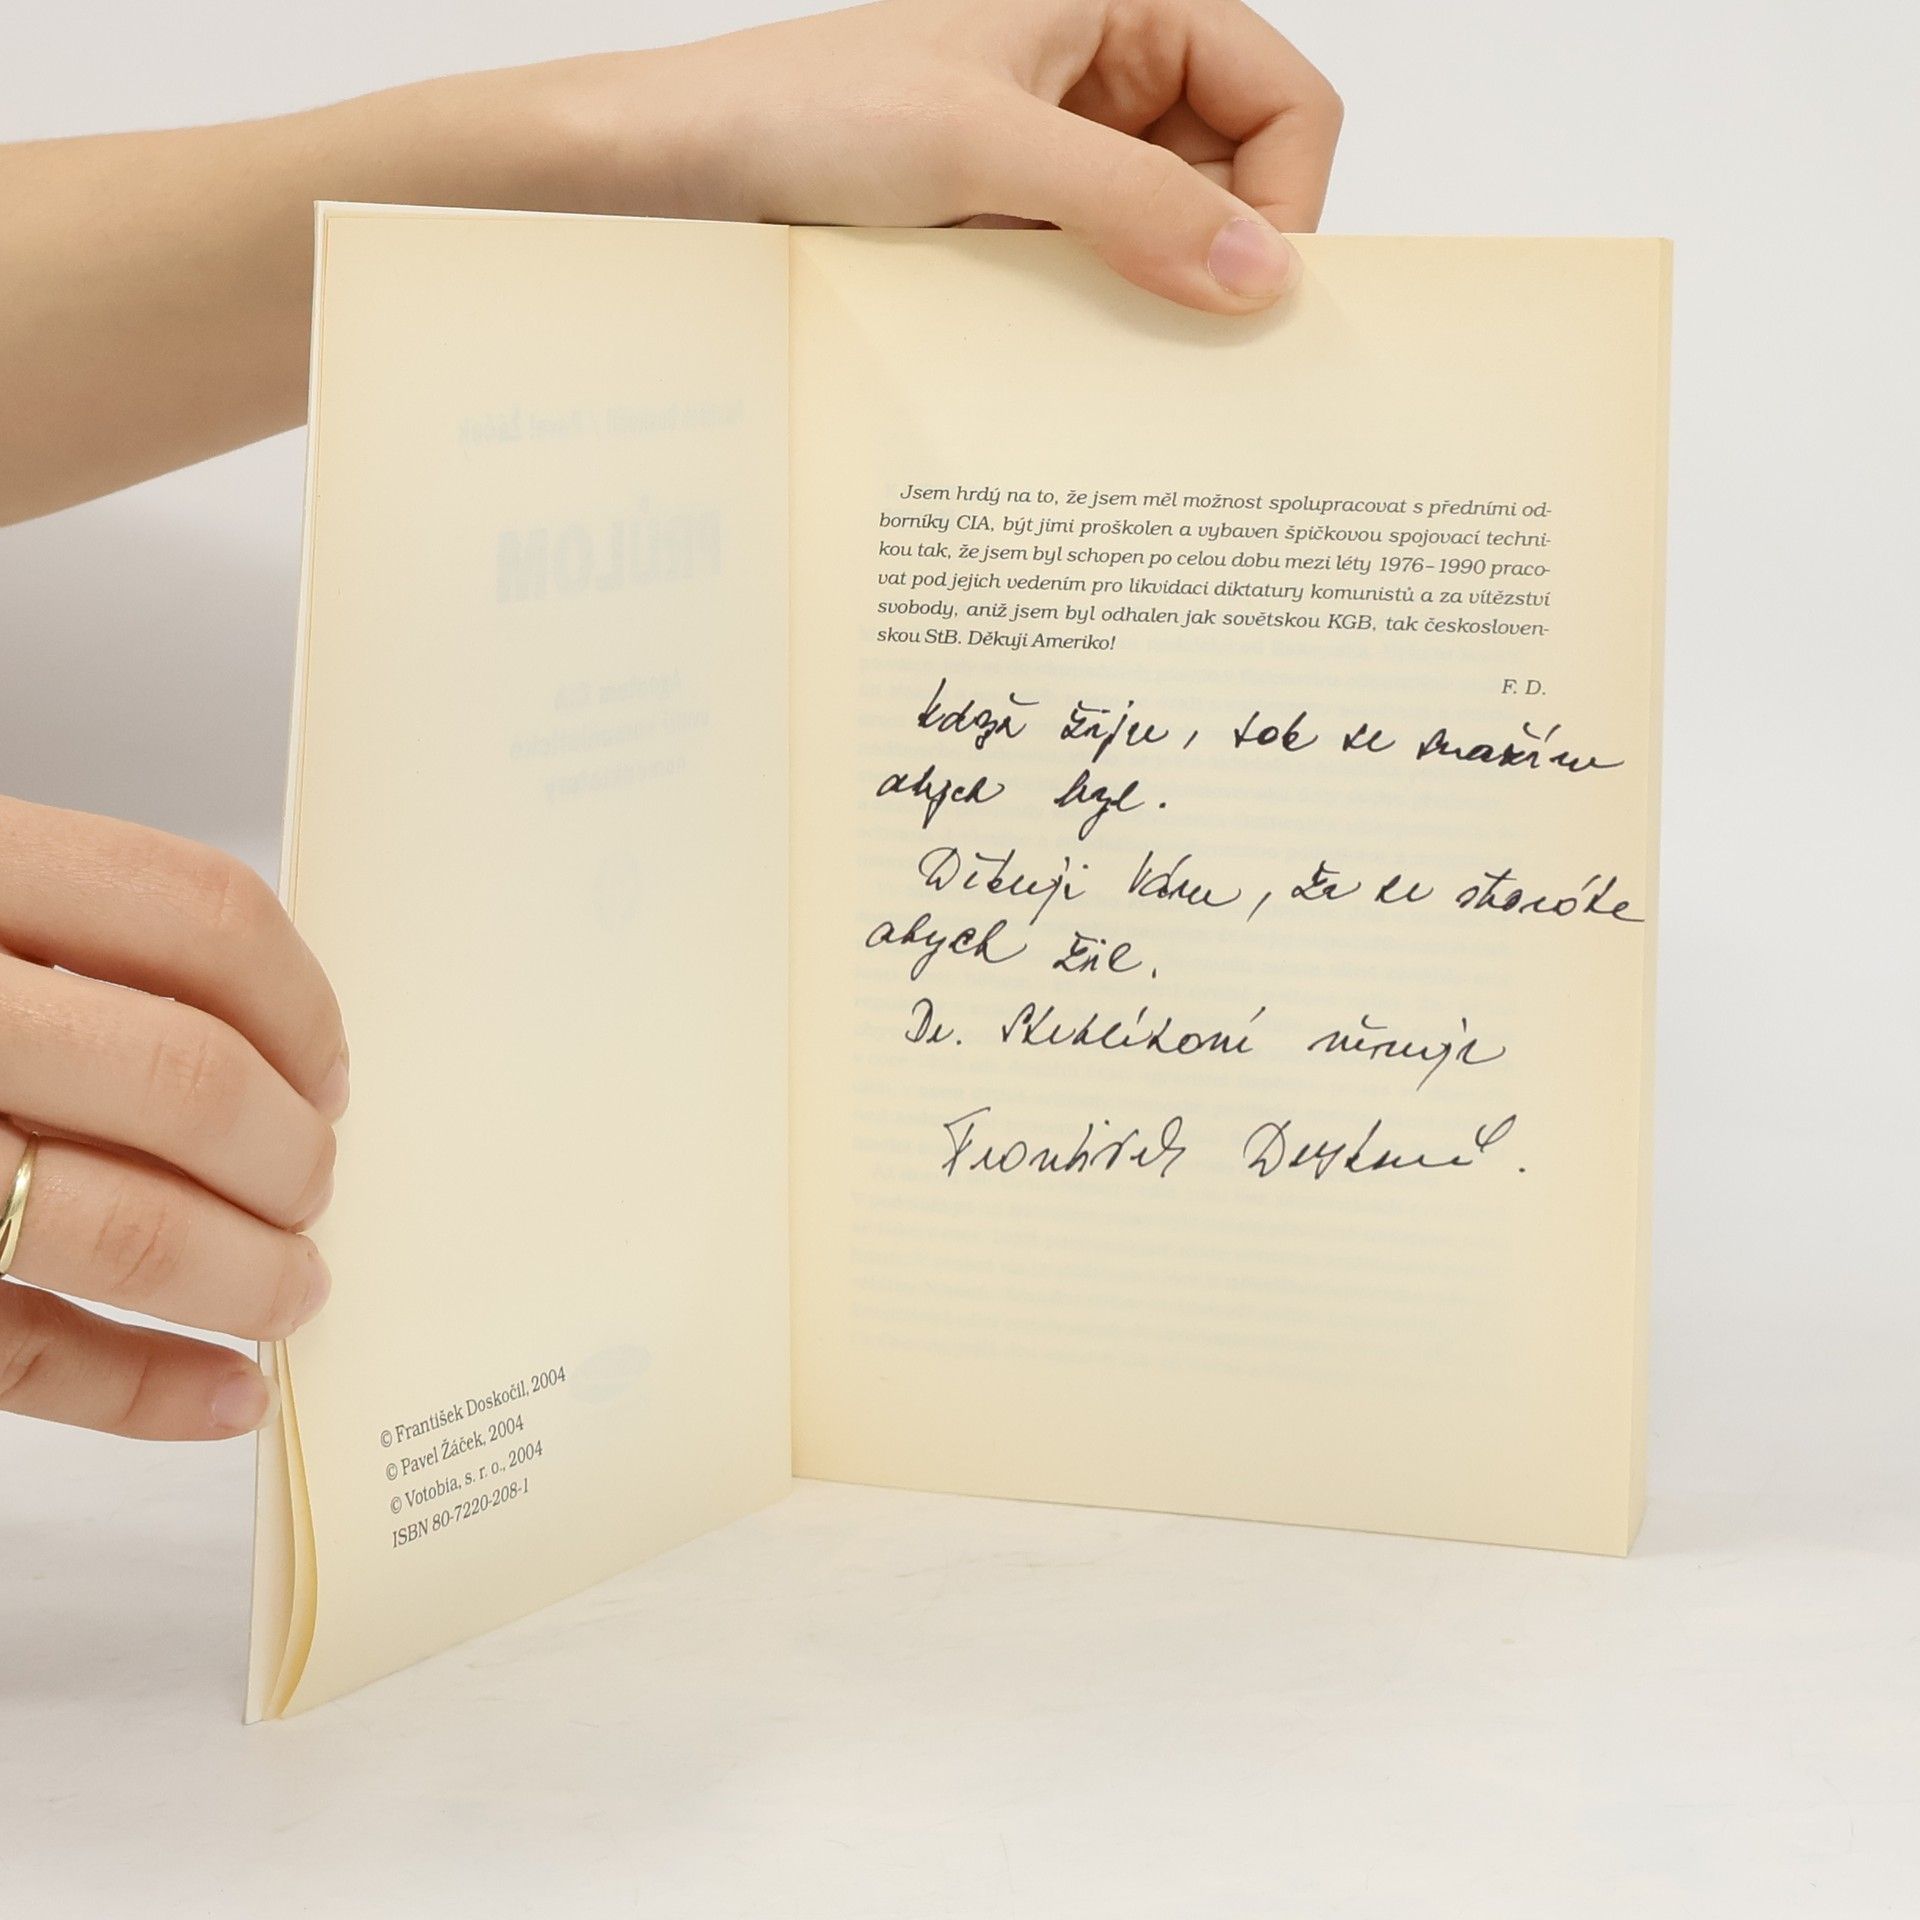 © František Doskočil, 2004
© Pavel Žáček, 2004
© Votobia, s. r. o., 2004
ISBN 80-7220-208-1
Jsem hrdý na to, že jsem měl možnost spolupracovat s předními od-
borníky CIA, být jimi proškolen a vybaven špičkovou spojovací techni-
kou tak, že jsem byl schopen po celou dobu mezi léty 1976–1990 praco-
vat pod jejich vedením pro likvidaci diktatury komunistů a za vítězství
svobody, aniž jsem byl odhalen jak sovětskou KGB, tak českosloven-
skou StB. Děkuji Ameriko!
F. D.
Když žiju, tak se snažím
abych byl.
Děkuji Vám, že se staráte
abych žil.
Dr. Stehlíkové věnuje
František Doskočil.